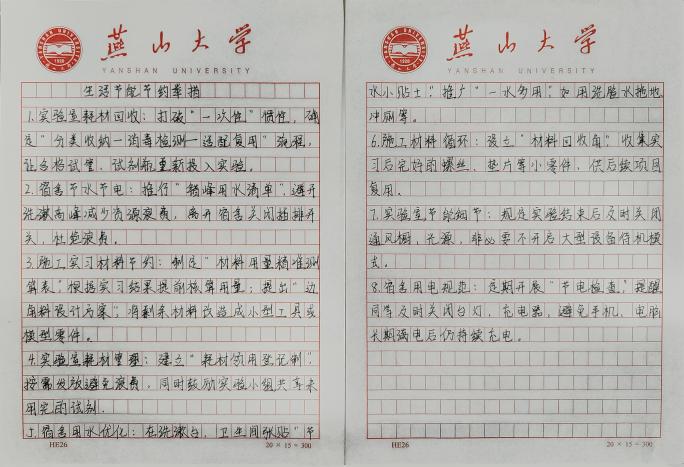 燕山大学
YANSHAN UNIVERSITY
生活节能节约举措
1.实验室耗材回收：打破"一次性"惯性，确
定"分类收纳—消毒检测—适配复用"流程，
让合格试管、试剂瓶重新投入实验。
2.宿舍节水节电：推行"错峰用水清单"，避开
洗漱高峰减少资源浪费，离开宿舍关闭插排开
关，杜绝浪费。
3.施工实习材料节约：制定"材料用量精准测
算表"，根据实习结果提前核算用量；提出"边
角料设计方案"，将剩余材料改造成小型工具或
模型零件。
4.实验室耗材管理：建立"耗材领用登记制"，
按需发放避免浪费，同时鼓励实验小组共享未
用完的试剂.
5.宿舍用水优化：在洗漱台、卫生间张贴"节
HE26
20 × 15 = 300
燕山大学
YANSHAN UNIVERSITY
水小贴士"，推广"一水多用"，如用洗脸水拖地、
冲厕等。
6.施工材料循环：设立"材料回收角"，收集实
习后完好的螺丝、垫片等小零件，供后续项目
复用。
7.实验室节能细节：规定实验结束后及时关闭
通风橱，光源，非必要不开启大型设备待机模
式。
8.宿舍用电规范：定期开展"节电检查"，提醒
同学及时关闭台灯、充电器，避免手机、电脑
长期满电后仍持续充电。
HE26
20 × 15 = 300